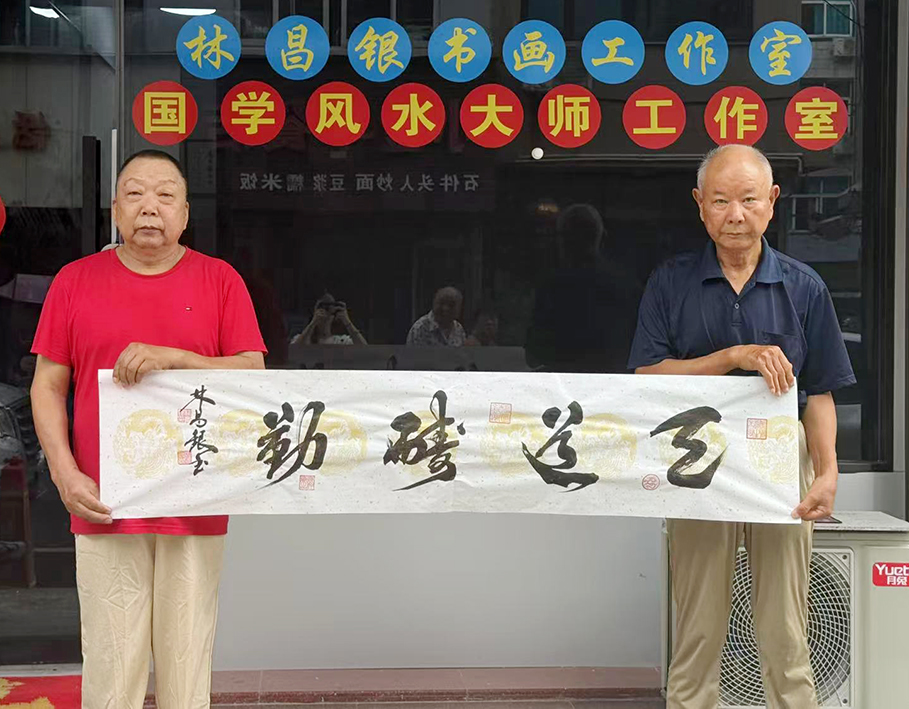 林昌银书画工作室
国学风水大师工作室
炒面 豆浆 糯米饭
天道酬勤
林昌银书
Yueb
月兔